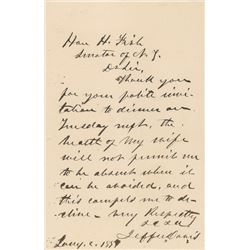 Hon H. Fish
Senator of N. Y.
Dr Sir,
Thank you
for your polite invi-
tation to dinner on
Tuesday next, the
health of my wife
will not permit me
to be absent when it
can be avoided, and
this compels me to de-
cline - Very Respectfy
Jeffn Davis